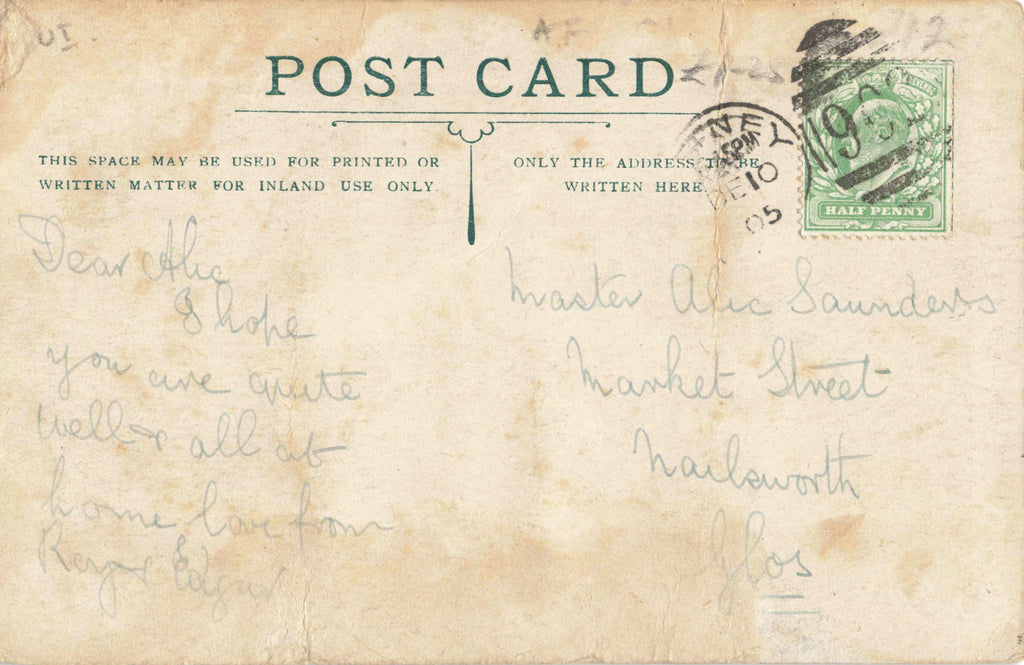 POST CARD
THIS SPACE MAY BE USED FOR PRINTED OR
WRITTEN MATTER FOR INLAND USE ONLY.
ONLY THE ADDRESS TO BE
WRITTEN HERE
HALF PENNY
DE 10
05
Dear Alic
I hope
you are quite
well & all at
home love from
Edgar
Master Alic Saunders
Market Street
Nailsworth
Glos